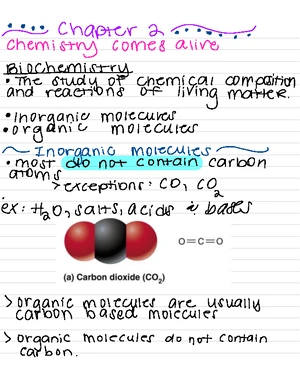 Chapter 2
Chemistry comes alive
Biochemistry
• The study of chemical composition
and reactions of living matter.
• Inorganic molecules
• organic molecules
Inorganic molecules
• most do not contain carbon
atoms
> exceptions: CO, CO2
ex: H2O, salts, acids & bases
O=C=O
(a) Carbon dioxide (CO2)
> organic molecules are usually
carbon based molecules
> organic molecules do not contain
carbon.